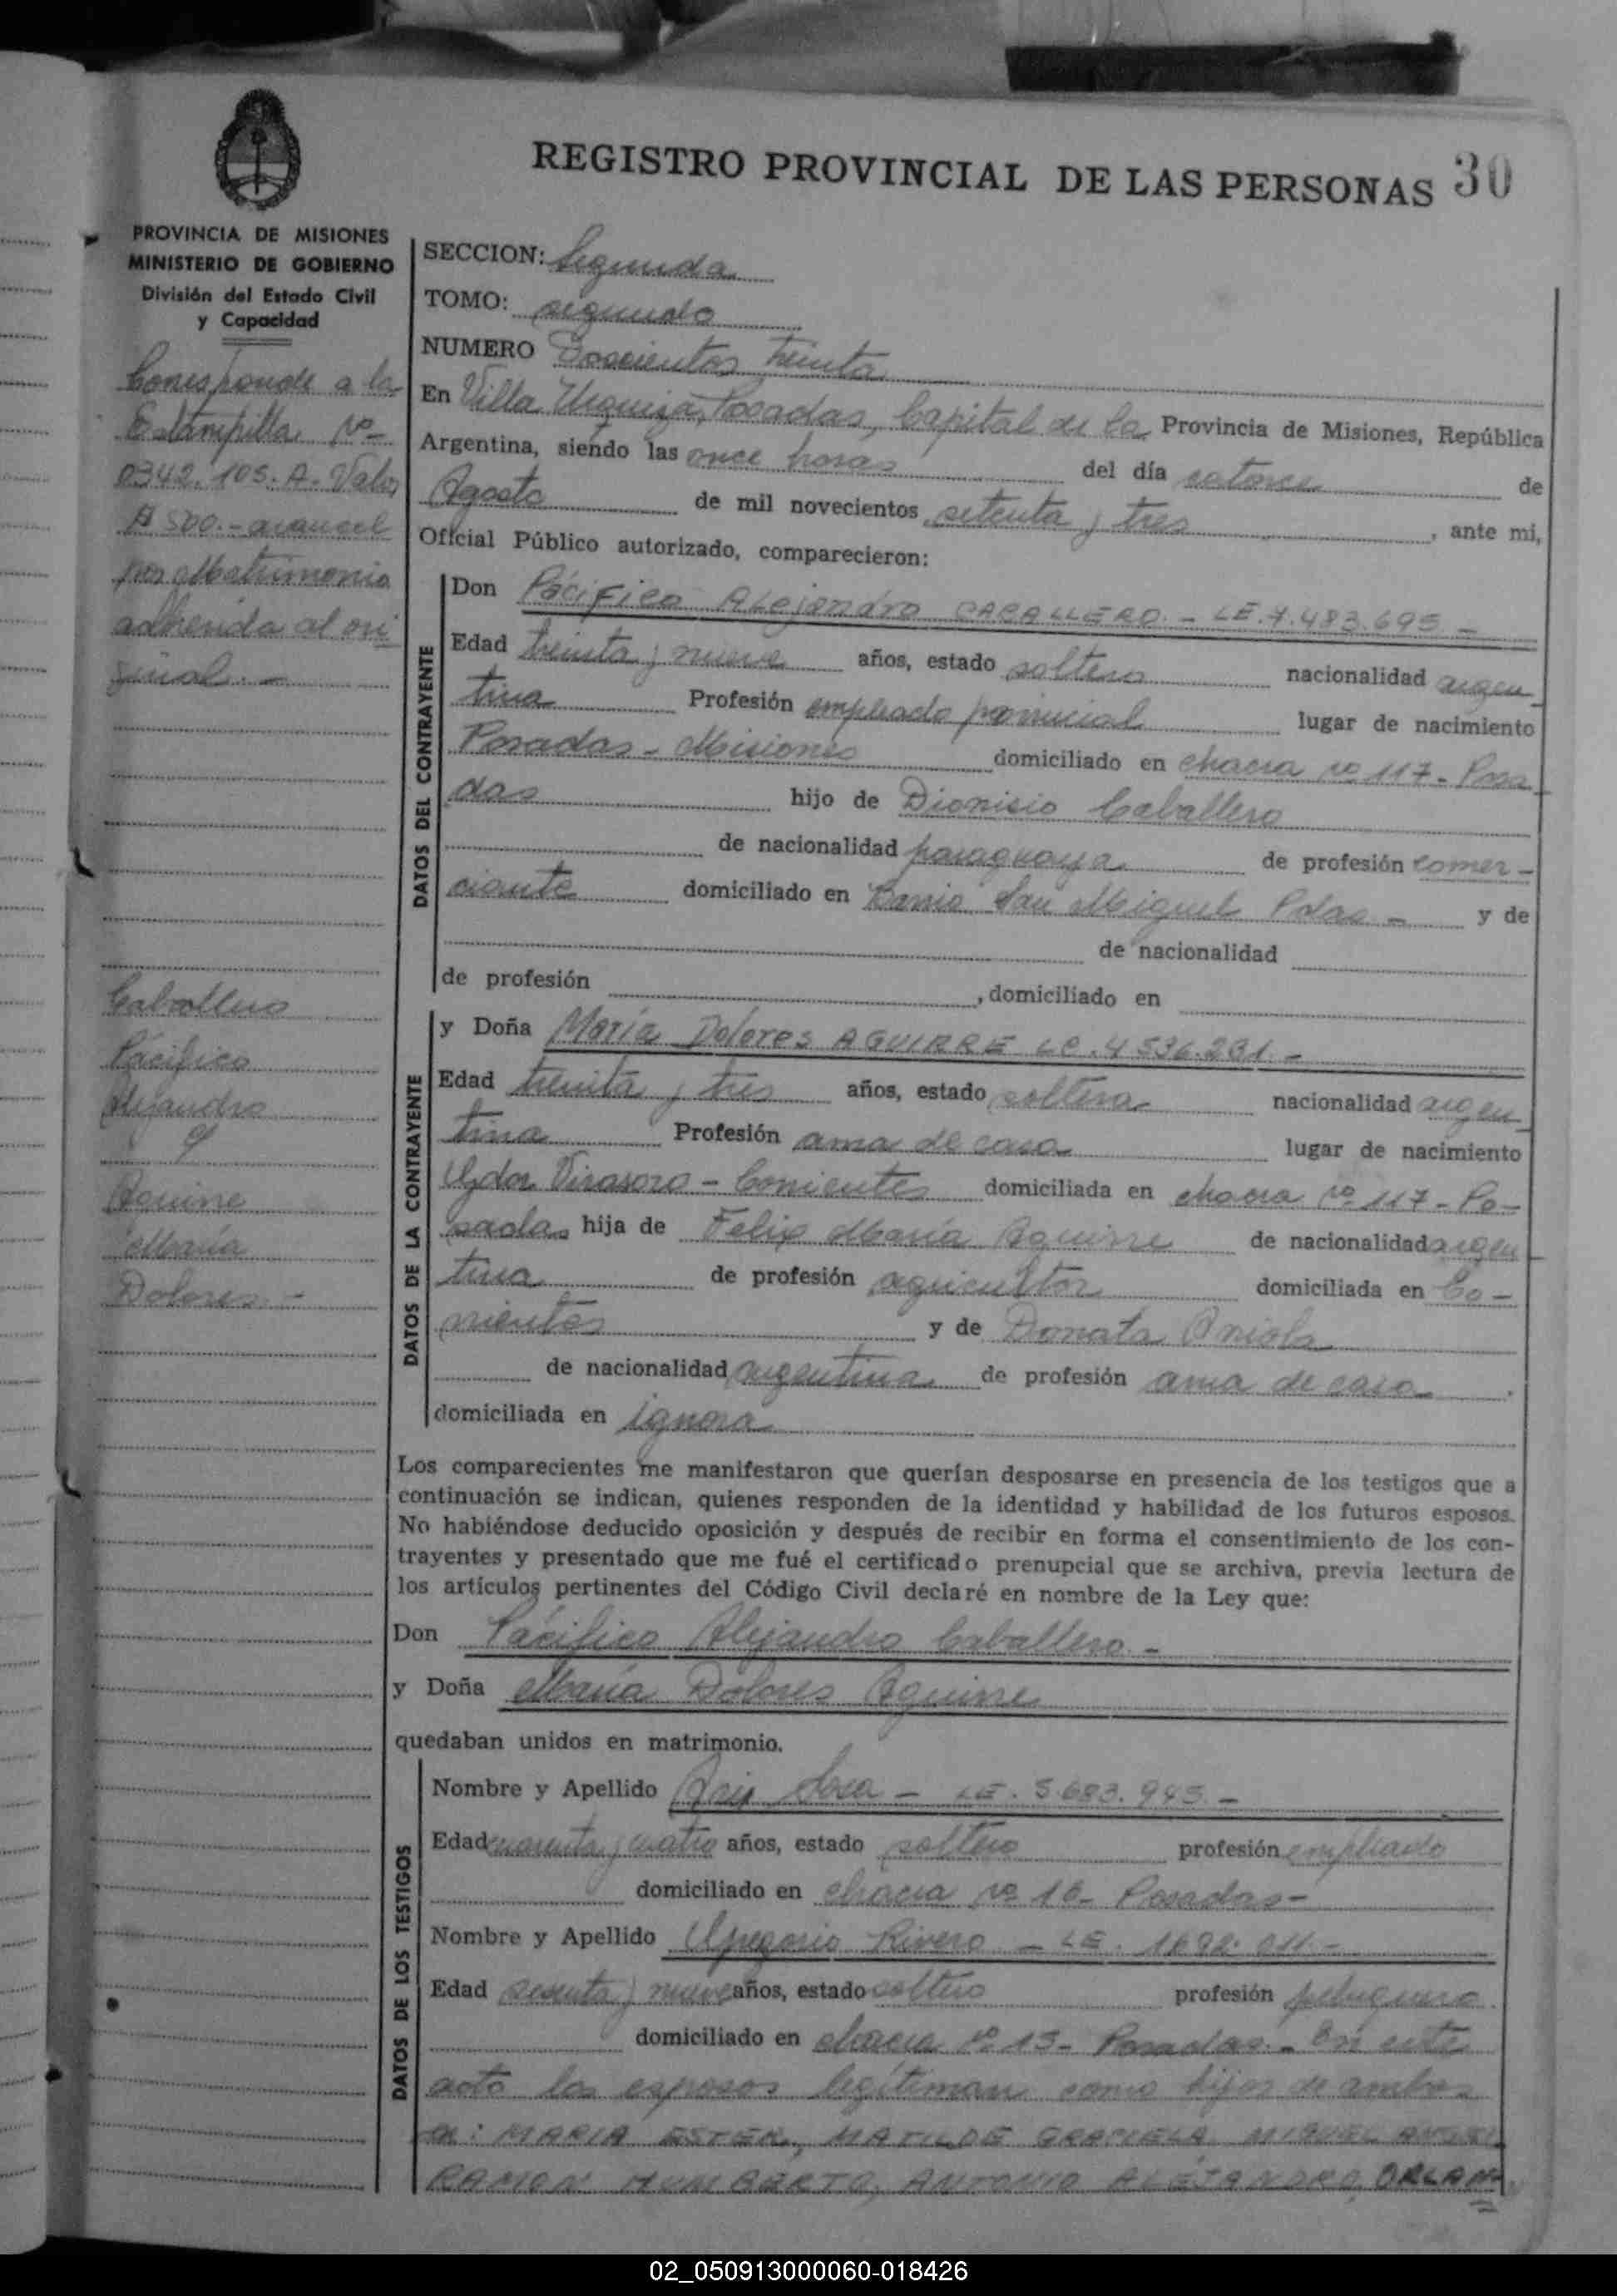 REGISTRO PROVINCIAL DE LAS PERSONAS 30
PROVINCIA DE MISIONES
MINISTERIO DE GOBIERNO
División del Estado Civil
y Capacidad
Corresponde a la
Estampilla No
0342.105.A. Valor
$ 500.- arancel
por Matrimonio
adherida al ori
ginal. -
Caballero
Pácifico
Alejandro
y
Aguirre
María
Dolores -
SECCION: Segunda
TOMO: segundo
NUMERO Doscientos treinta
En Villa Urquiza, Posadas, Capital de la Provincia de Misiones, República
Argentina, siendo las once horas del día catorce de
Agosto de mil novecientos setenta y tres, ante mi,
Oficial Público autorizado, comparecieron:
DATOS DEL CONTRAYENTE
Don Pácifico Alejandro CABALLERO. - LE.7.483.695 -
Edad treinta y nueve años, estado soltero nacionalidad argen
tina Profesión empleado provincial lugar de nacimiento
Posadas - Misiones domiciliado en chacra no 117 - Posa
das hijo de Dionisio Caballero
de nacionalidad paraguaya de profesión comer -
ciante domiciliado en Barrio San Miguel Pdas - y de
de nacionalidad
de profesión , domiciliado en
DATOS DE LA CONTRAYENTE
y Doña María Dolores AGUIRRE LC. 4 536.231. -
Edad treinta y tres años, estado soltera nacionalidad argen
tina Profesión ama de casa lugar de nacimiento
Gdor Virasoro - Corrientes domiciliada en chacra no 117 - Po-
sadas hija de Felix María Aguirre de nacionalidad argen
tina de profesión agricultor domiciliada en Co -
rrientes y de Donata
de nacionalidad argentina de profesión ama de casa
domiciliada en ignora
Los comparecientes me manifestaron que querían desposarse en presencia de los testigos que a
continuación se indican, quienes responden de la identidad y habilidad de los futuros esposos.
No habiéndose deducido oposición y después de recibir en forma el consentimiento de los con-
trayentes y presentado que me fué el certificado prenupcial que se archiva, previa lectura de
los artículos pertinentes del Código Civil declaré en nombre de la Ley que:
Don Pácifico Alejandro Caballero. -
y Doña María Dolores Aguirre
quedaban unidos en matrimonio.
DATOS DE LOS TESTIGOS
Nombre y Apellido Sosa - LE. 5.683.945. -
Edad cuarenta y cuatro años, estado soltero profesión empleado
domiciliado en chacra no 16 - Posadas -
Nombre y Apellido Gregorio Rivero - LE. 1692.011. -
Edad sesenta y nueve años, estado soltero profesión peluquero
domiciliado en chacra no 13 - Posadas. - En este
acto los esposos legitiman como hijos de ambos
a: MARIA ESTER, MATILDE GRACIELA, MIGUEL ANGEL
RAMON HUMBERTO, ANTONIO ALEJANDRO, ORLAN
02_050913000060-018426